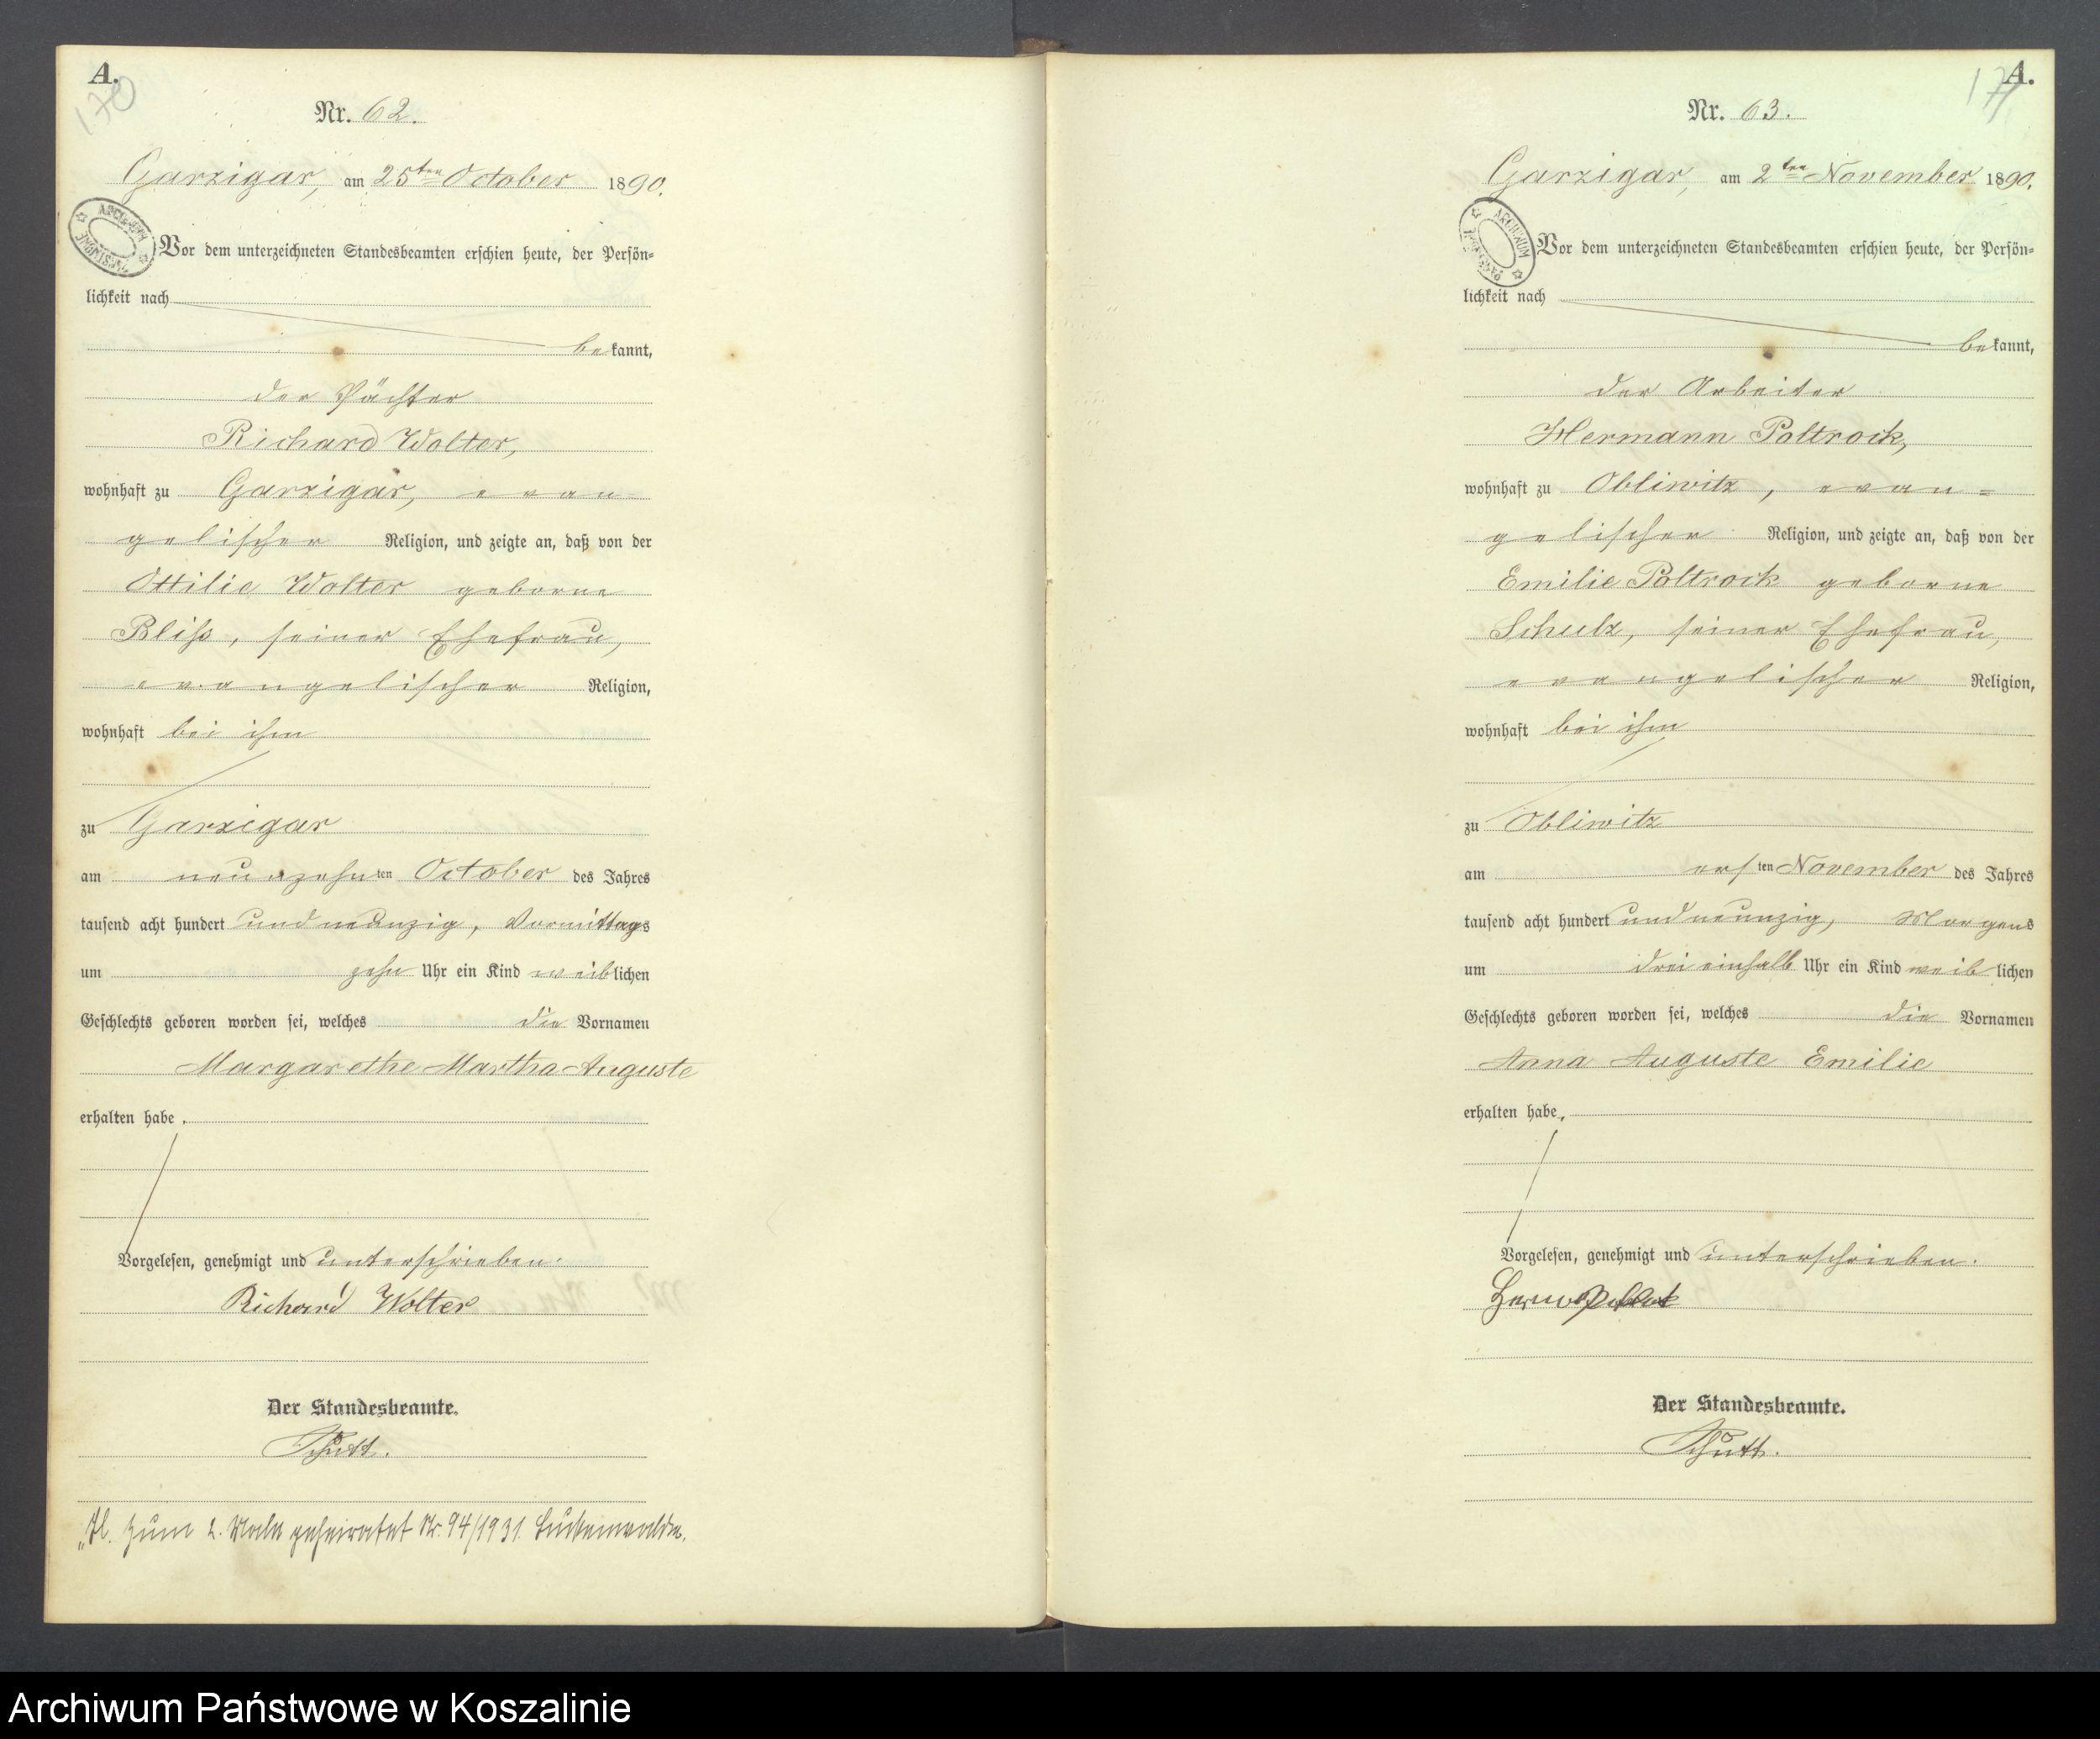 A.
170
Nr. 62.
Garzigar, am 25ten October 1890.
Vor dem unterzeichneten Standesbeamten erschien heute, der Persön-
lichkeit nach
bekannt,
der Pächter
Richard Wolter,
wohnhaft zu Garzigar, evan-
gelischer Religion, und zeigte an, daß von der
Ottilie Wolter geborne
Bliß, seiner Ehefrau,
evangelischer Religion,
wohnhaft bei ihm
zu Garzigar
am neunzehnten October des Jahres
tausend acht hundert und neunzig, Vormittags
um zehn Uhr ein Kind weiblichen
Geschlechts geboren worden sei, welches die Vornamen
Margarethe Martha Auguste
erhalten habe.
Vorgelesen, genehmigt und unterschrieben.
Richard Wolter
Der Standesbeamte.
Schütt.
zum 2. Male geheiratet Nr. 94/1931. Luckenwalde.
A.
171
Nr. 63.
Garzigar, am 2ten November 1890.
ARCHIWUM
Vor dem unterzeichneten Standesbeamten erschien heute, der Persön-
lichkeit nach
bekannt,
der Arbeiter
Hermann Poltrock,
wohnhaft zu Obliwitz, evan-
gelischer Religion, und zeigte an, daß von der
Emilie Poltrock geborne
Schulz, seiner Ehefrau,
evangelischer Religion,
wohnhaft bei ihm
zu Obliwitz
am ersten November des Jahres
tausend acht hundert und neunzig, Morgens
um drei einhalb Uhr ein Kind weiblichen
Geschlechts geboren worden sei, welches die Vornamen
Anna Auguste Emilie
erhalten habe.
Vorgelesen, genehmigt und unterschrieben.
Der Standesbeamte.
Schütt.
Archiwum Państwowe w Koszalinie